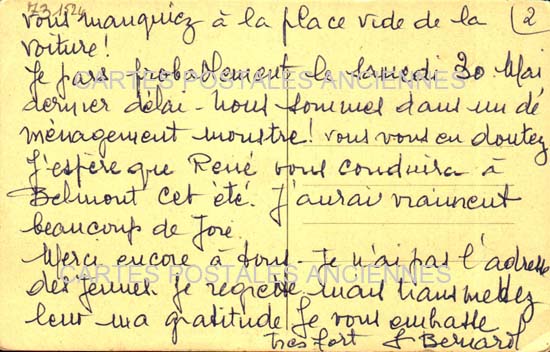 vous manquiez à la place vide de la
voiture!
2
Je pars probablement le samedi 30 Mai
dernier délai - nous sommes dans un dé
ménagement monstre! vous vous en doutez
J'espère que René vous conduira à
Belmont cet été. J'aurai vraiment
beaucoup de Joie
Merci encore à tous - Je n'ai pas l'adresse
des jeunes je regrette mais transmettez
leur ma gratitude Je vous embrasse
très fort Bernard
CARTES POSTALES ANCIENNES
CARTES POSTALES ANCIENNES